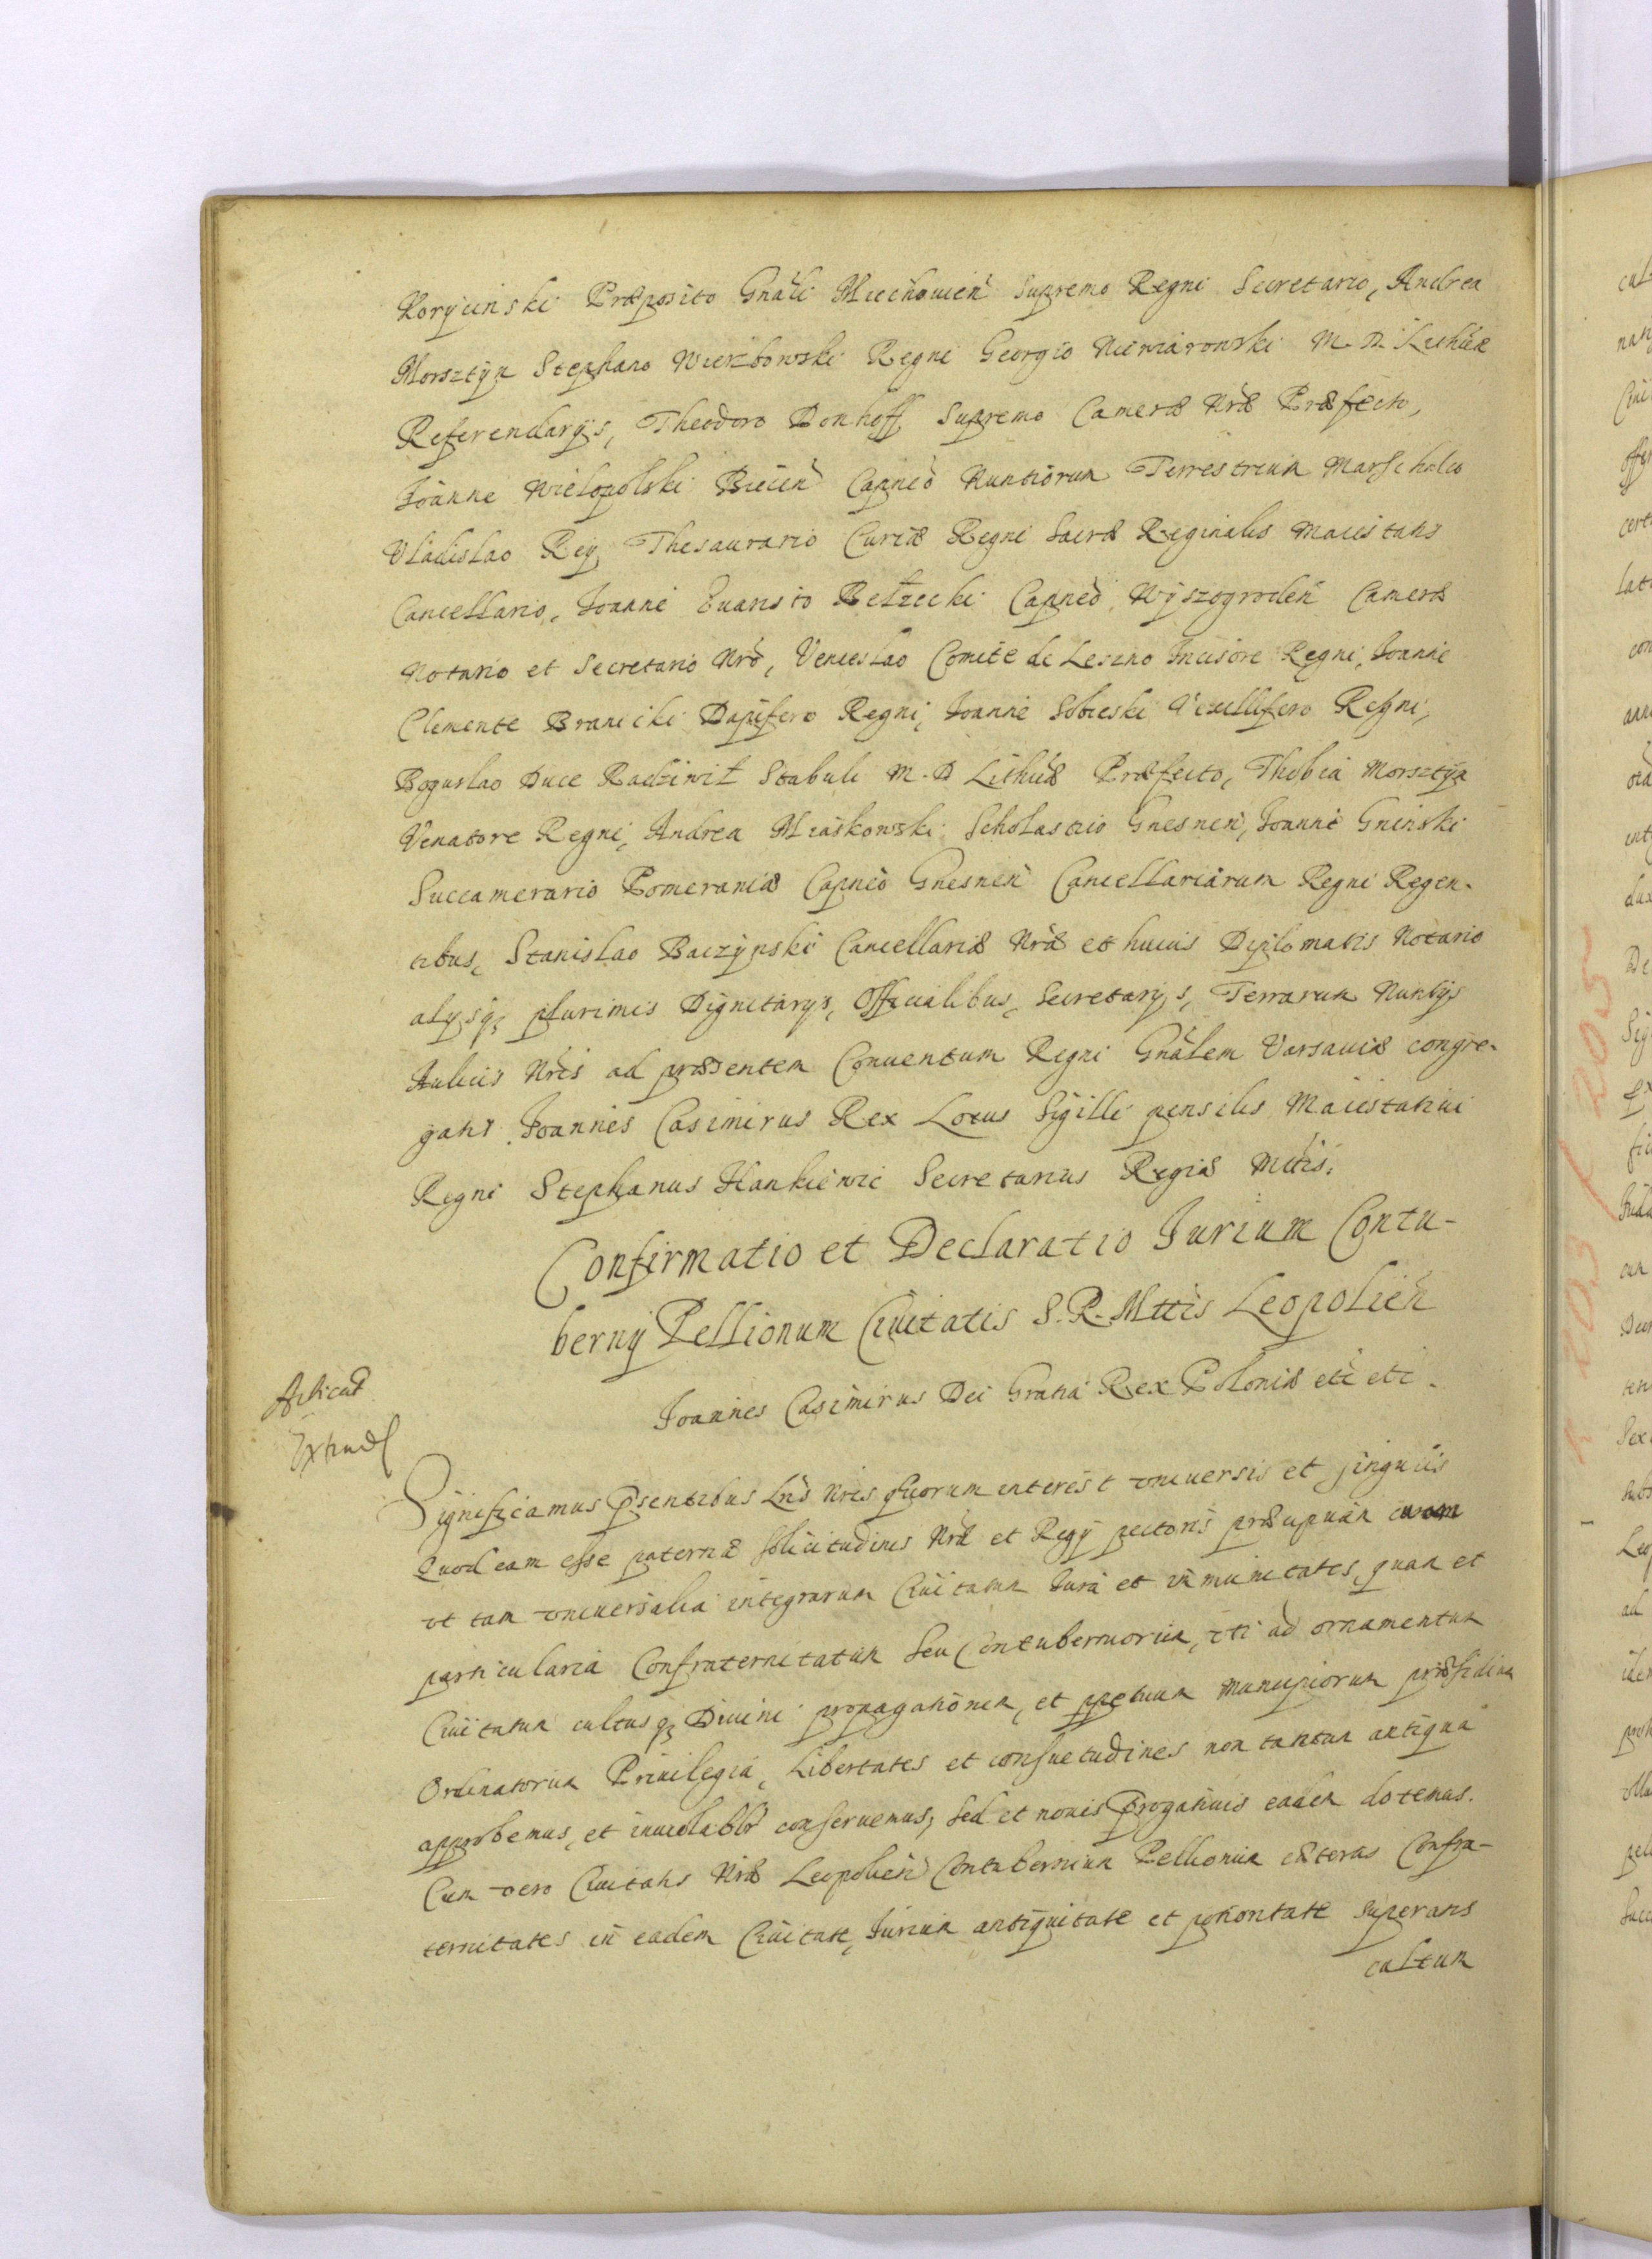 Korycinski Præposito Gnali Miechouien Supremo Regni Secretario, Andrea
Morsztyn Stephano Wierzbowski Regni Georgio Niemiaronski M. D. Lithuæ
Referendarys, Theodoro Donhoff Supremo Cameræ Nræ Præfecto,
Joanne Wielopolski Biecen Capneo Nuntiorum Terrestrium Marschalco
Vladislao Rey Thesaurario Curiæ Regni Sacræ Reginalis Maiestatis
Cancellario, Joanne Euaristo Bełzecki Capneo Wyszogroden Cameræ
Notario et Secretario Nro, Venceslao Comite de Leszno Incisore Regni, Joanne
Clemente Branicki Dapifero Regni, Joanne Sobieski Vexillifero Regni,
Boguslao Duce Radziwił Stabuli M. D Lithuæ Præfecto, Thobia Morsztyn
Venatore Regni, Andrea Miaskowski Scholastico Gnesnen, Joanne Gninski
Succamerario Pomeraniæ Capneo Gnesnen Cancellariarum Regni Regen-
tibus, Stanislao Baczynski Cancellariæ Nræ et huius Diplomatis Notario
alysq; plurimis Dignitarys, Officialibus, Secretarys, Terrarum Nuntys
Aulicis Nris ad præsentem Conuentum Regni Gnalem Varsauiæ congre-
gatis. Joannes Casimirus Rex Locus Sigilli pensilis Maiestatiui
Regni Stephanus Hankiewic Secretarius Regiæ Mttis.
Confirmatio et Declaratio Jurium Contu-
berny Pellionum Ciuitatis S. R. Mttis Leopolien
Joannes Casimirus Dei Gratia Rex Poloniæ etc etc.
Significamus Psentibus Lris Nris quorum interest vniuersis et singulis
Quod eam esse paternæ solicitudinis Nræ et Regy pectoris præcipuam curam
vt tam vniuersalia integrarum Ciuitatum Jura et immunitates, quam et
particularia Confraternitatum seu Contuberniorum, vti ad ornamentum
Ciuitatum cultusq; Diuini propagationem, et ppetuum Municipiorum præsidium
Ordinatorum Priuilegia, Libertates et consuetudines non tantum antiqua
approbemus, et inuiolablr conseruemus; sed et nouis Progatiuis eadem dotemus.
Cum vero Ciuitatis Nræ Leopolien Contubernium Pellionum cæteras Confra-
ternitates in eadem Ciuitate, Jurium antiquitate et potioritate superans
cultum